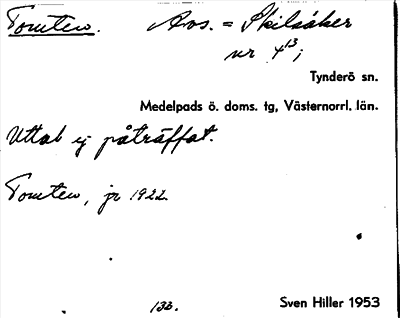 Tomten. Avs. = Skilsåker
nr 4¹³;
Tynderö sn.
Medelpads ö. doms. tg, Västernorrl. län.
Uttal ej påträffat.
Tomten, jr 1922.
132. Sven Hiller 1953